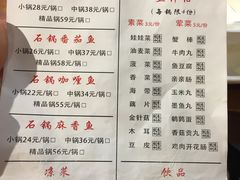 小锅28元/锅□ 中锅38元/锅□
精品锅59元/锅□
石锅番茄鱼
小锅26元/锅□ 中锅36元/锅□
精品锅57元/锅□
石锅咖喱鱼
小锅27元/锅□ 中锅37元/锅□
精品锅58元/锅□
石锅麻香鱼
小锅24元/锅□ 中锅36元/锅□
精品锅56元/锅□
凉菜
(每锅限4份)
素菜 3元/份 荤菜 5元/份
娃娃菜 蟹棒
油麦菜 牛肉丸
菠菜 鱼豆腐
香菜 亲亲肠
海带 玉米肠
藕片 墨鱼丸
金针菇 鹌鹑蛋
木耳 香菇贡丸
豆皮 鸡肉开花肠
饮品